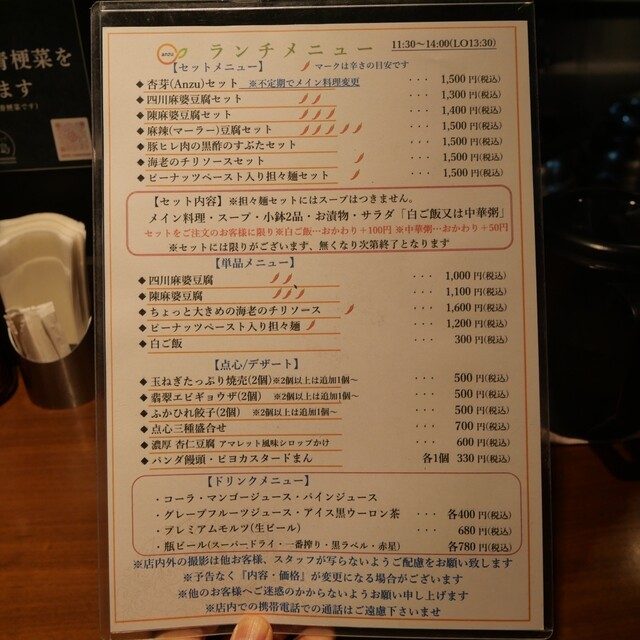 青梗菜を
ます
梗菜です)
anzu
ランチメニュー 11:30～14:00(LO13:30)
【セットメニュー】 マークは辛さの目安です
◆杏芽(Anzu)セット ※不定期でメイン料理変更 ･･･ 1,500円(税込)
◆四川麻婆豆腐セット ･･･ 1,300円(税込)
◆陳麻婆豆腐セット ･･･ 1,400円(税込)
◆麻辣(マーラー)豆腐セット ･･･ 1,500円(税込)
◆豚ヒレ肉の黒酢のすぶたセット ･･･ 1,500円(税込)
◆海老のチリソースセット ･･･ 1,500円(税込)
◆ピーナッツペースト入り担々麺セット ･･･ 1,500円(税込)
【セット内容】※担々麺セットにはスープはつきません。
メイン料理・スープ・小鉢2品・お漬物・サラダ「白ご飯又は中華粥」
セットをご注文のお客様に限り※白ご飯…おかわり+100円 ※中華粥…おかわり+50円
※セットには限りがございます、無くなり次第終了となります
【単品メニュー】
◆四川麻婆豆腐 ･･･ 1,000円(税込)
◆陳麻婆豆腐 ･･･ 1,100円(税込)
◆ちょっと大きめの海老のチリソース ･･･ 1,600円(税込)
◆ピーナッツペースト入り担々麺 ･･･ 1,200円(税込)
◆白ご飯 ･･･ 300円(税込)
【点心/デザート】
◆玉ねぎたっぷり焼売(2個)※2個以上は追加1個～ ･･･ 500円(税込)
◆翡翠エビギョウザ(2個) ※2個以上は追加1個～ ･･･ 500円(税込)
◆ふかひれ餃子(2個) ※2個以上は追加1個～ ･･･ 500円(税込)
◆点心三種盛合せ ･･･ 700円(税込)
◆濃厚 杏仁豆腐 アマレット風味シロップかけ ･･･ 600円(税込)
◆パンダ饅頭・ピヨカスタードまん 各1個 330円(税込)
【ドリンクメニュー】
・コーラ・マンゴージュース・パインジュース
・グレープフルーツジュース・アイス黒ウーロン茶 ･･･ 各400円(税込)
・プレミアムモルツ(生ビール) ･･･ 680円(税込)
・瓶ビール(スーパードライ・一番搾り・黒ラベル・赤星) 各780円(税込)
※店内外の撮影は他お客様、スタッフが写らないようご配慮をお願い致します
※予告なく『内容・価格』が変更になる場合がございます
※他のお客様へご迷惑のかからないようお願い申し上げます
※店内での携帯電話での通話はご遠慮下さいませ